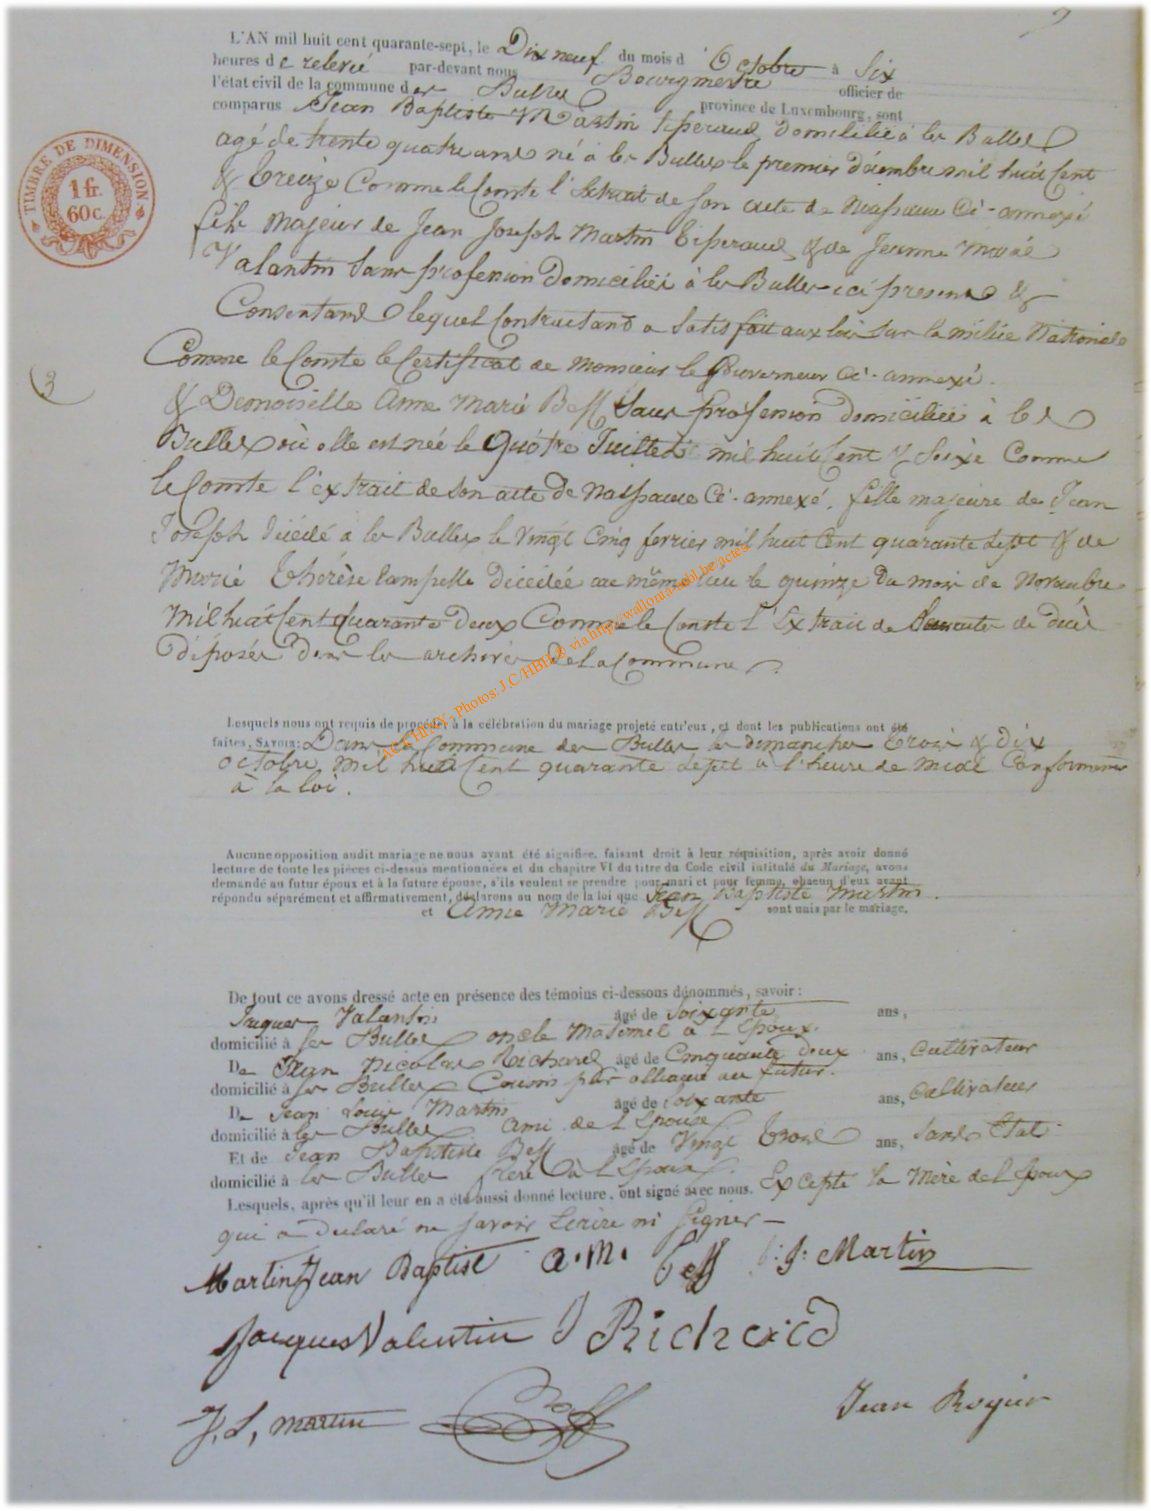 L'AN mil huit cent quarante-sept, le Dix neuf du mois d'Octobre à Six
heures de relevé par-devant nous Bourgmestre officier de
l'état civil de la commune des Bulles province de Luxembourg, sont
comparus Jean Baptiste Martin domicilié à les Bulles
agé de trente quatre ans né à les Bulles le premier décembre mil huit Cent
& treize Comme le Conste l'Extrait de son acte de Naissance Ci-annexé
fils majeur de Jean Joseph Martin & de Jeanne Marie
Valantin Sans profession Domiciliés à les Bulles ici présens &
Consentans lequel Contractant a Satisfait aux lois Sur la milice Nationale
Comme le Conste le Certificat de Monsieur le Gouverneur Ci-annexé.
& Demoiselle Anne Marie Beff Sans profession domiciliée à les
Bulles où elle est née le Quatre Juillet mil huit Cent & Seize Comme
le Conste l'extrait de son acte de Naissance Ci-annexé. fille majeure de Jean
Joseph décédé à les Bulles le Vingt Cinq fevrier mil huit Cent quarante Sept & de
Marie Thérèse décédée au même lieu le quinze du mois de Novembre
Mil huit Cent Quarante Deux Comme le Conste l'Extrait de de décès
déposés Dans les archives de la Commune.
3
TIMBRE DE DIMENSION
1 fr.
60 c.
ACL Photos: J.C/HBH&B via http://wallonia-asbl.be/actes
Lesquels nous ont requis de procéder à la célébration du mariage projeté entr'eux, et dont les publications ont été
faites, SAVOIR: Dans Commune des Bulles les dimanches trois & dix
octobre mil huit Cent quarante Sept à l'heure de midi Conformément
à la loi.
Aucune opposition audit mariage ne nous ayant été signifiée, faisant droit à leur réquisition, après avoir donné
lecture de toute les pièces ci-dessus mentionnées et du chapitre VI du titre du Code civil intitulé du Mariage, avons
demandé au futur époux et à la future épouse, s'ils veulent se prendre pour mari et pour femme, chacun d'eux ayant
répondu séparément et affirmativement, déclarons au nom de la loi que Jean Baptiste Martin
et Anne Marie Beff sont unis par le mariage.
De tout ce avons dressé acte en présence des témoins ci-dessous dénommés, savoir:
Jaques Valantin âgé de Soixante ans,
domicilié à les Bulles oncle Maternel à l'Époux.
De Jean Nicolas Richard âgé de Cinquante deux ans, Cultivateur
domicilié à les Bulles Cousin par alliance au futur.
De Jean Louis Martin âgé de Soixante ans, Cultivateur
domicilié à les Bulles Ami de l'Epouse
Et de Jean Baptiste Beff âgé de Vingt trois ans, Sans Etat
domicilié à les Bulles frère à l'Epouse.
Lesquels, après qu'il leur en a été aussi donné lecture, ont signé avec nous. Excepté la Mère de l'Epoux
qui a déclaré ne savoir Ecrire ni Signer
Martin Jean Baptist A.M. Beff J.J. Martin
Jacques Valentin Richard
J. L. martin Jean Rogier